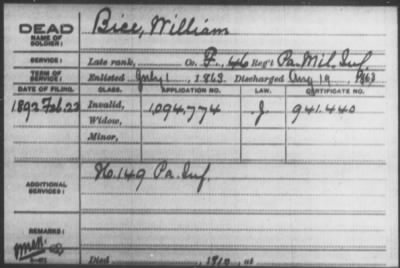 DEAD Bice, William
NAME OF SOLDIER:
SERVICE: Late rank, Co. F, 46 Reg't Pa. Mil. Inf.
TERM OF SERVICE: Enlisted July 1, 1863. Discharged Aug 19, 1863
DATE OF FILING. CLASS. APPLICATION NO. LAW. CERTIFICATE NO.
1892 Feb. 23 Invalid, 1,094,774 J. 941.440
Widow,
Minor,
ADDITIONAL SERVICES: K. 149 Pa. Inf.
REMARKS:
Died , 191 , at